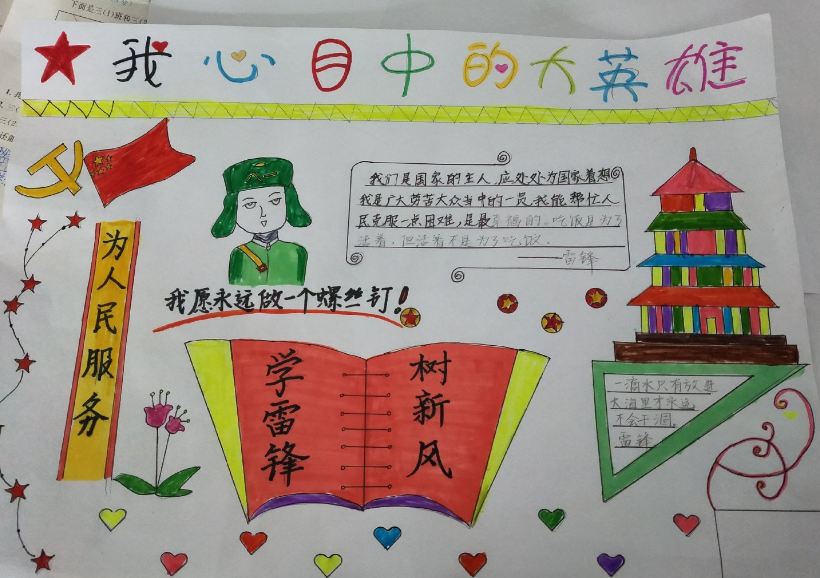 下面是三(1)班和三(2
我心目中的大英雄
为人民服务
我们是国家的主人,应处处为国家着想
我是广大劳苦大众当中的一员,我能帮忙人
民克服一点困难,是最幸福的。吃饭是为了
活着,但活着不是为了吃饭。
——雷锋
我愿永远做一个螺丝钉!
学雷锋
树新风
一滴水只有放进
大海里才永远
不会干涸
雷锋